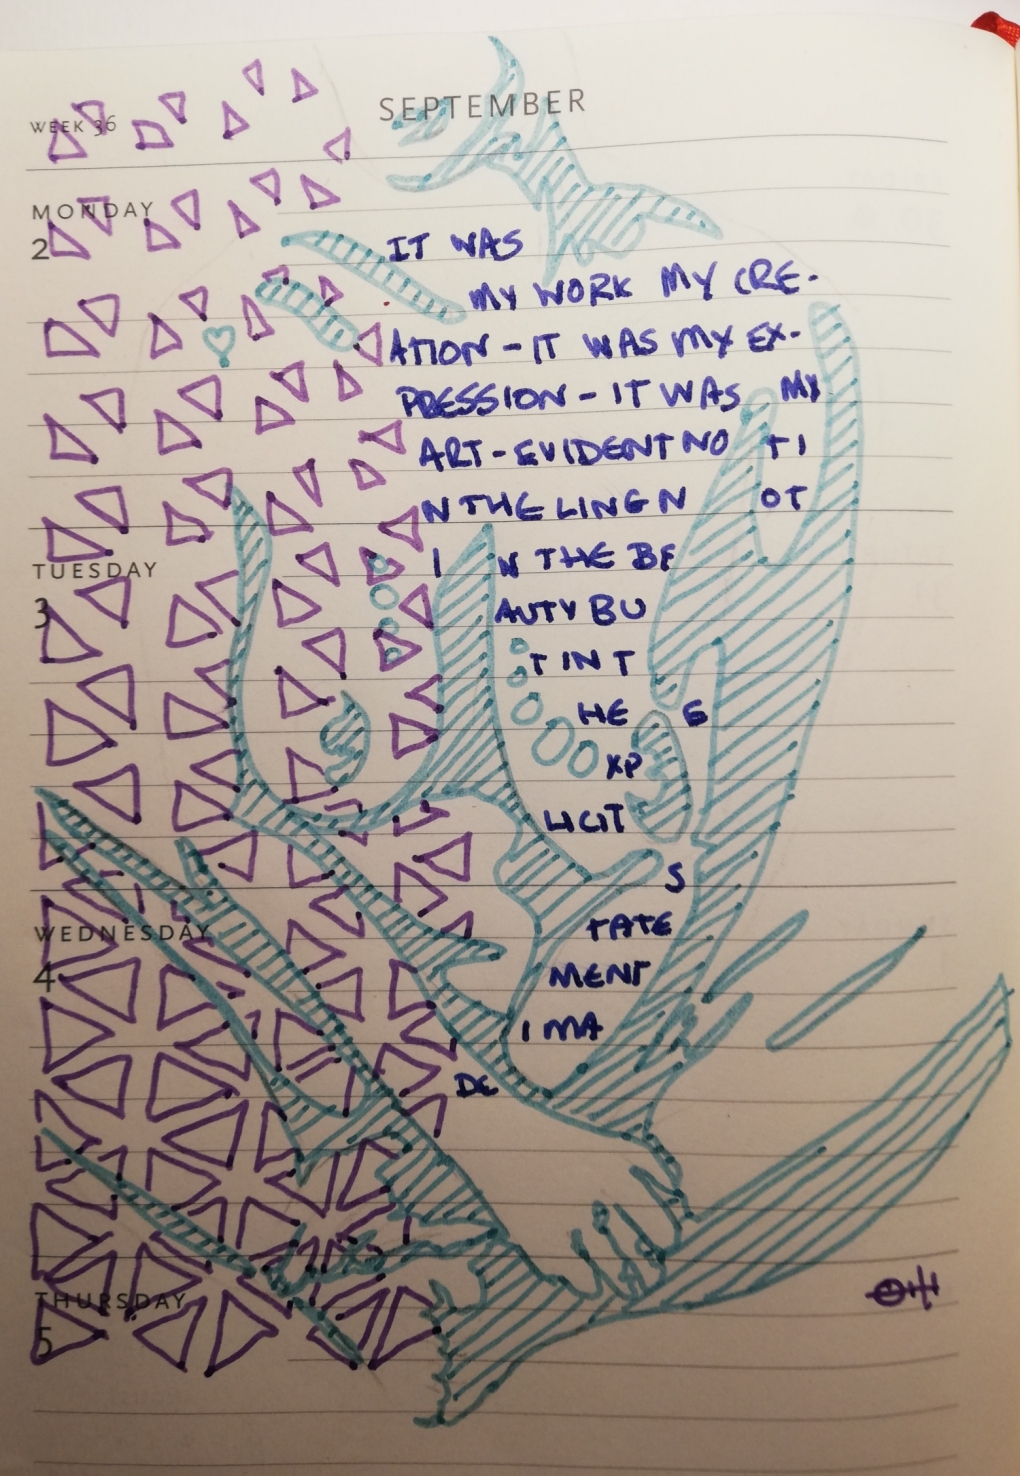 SEPTEMBER
WEEK 36
MONDAY
2
IT WAS
MY WORK MY CRE-
ATION - IT WAS MY EX-
PRESSION - IT WAS MY
ART - EVIDENT NO TI
N THE LING N OT
I N THE BE
TUESDAY
3
AUTY BU
T IN T
HE E
XP
LICIT
S
TATE
WEDNESDAY
4
MENT
I MA
DE
THURSDAY
5